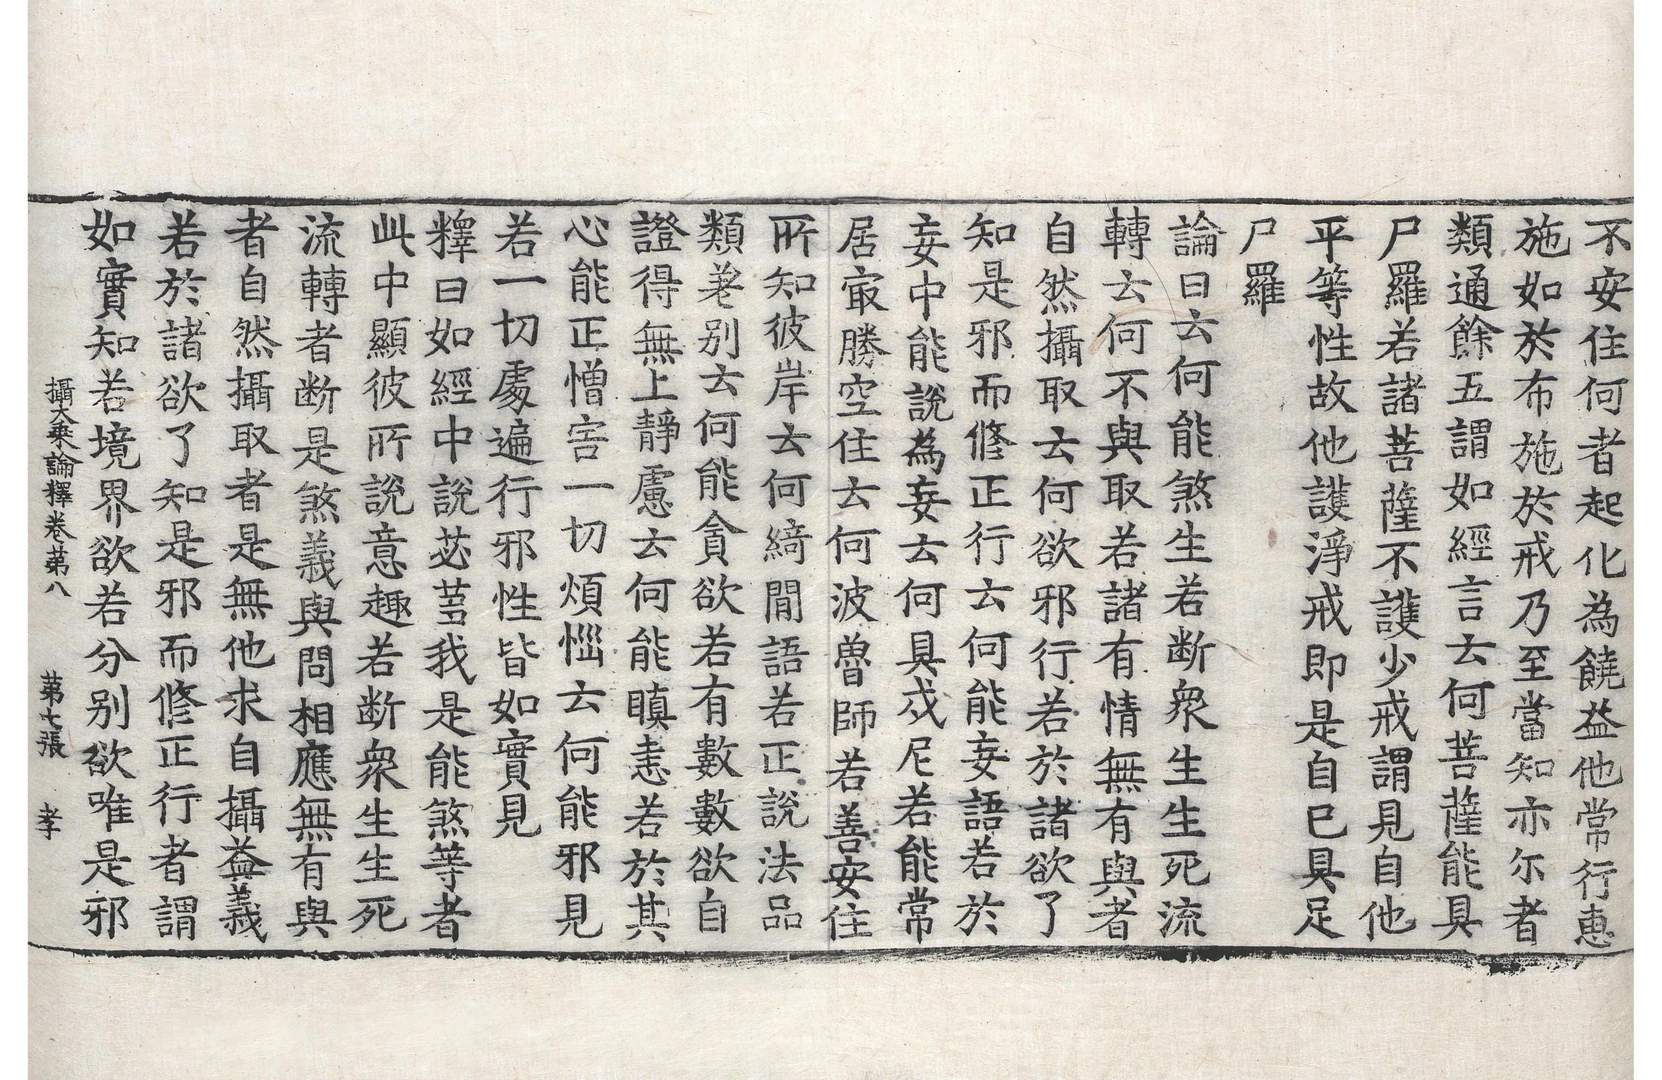 不安住何者起化為饒益他常行惠
施如於布施於戒乃至當知亦尒者
類通餘五謂如經言云何菩薩能具
尸羅若諸菩薩不護少戒謂見自他
平等性故他護淨戒即是自已具足
尸羅
論曰云何能煞生若断衆生生死流
轉云何不與取若諸有情無有與者
自然攝取云何欲邪行若於諸欲了
知是邪而修正行云何能妄語若於
妄中能說為妄云何具戍尼若能常
居㝡勝空住云何波魯師若善安住
所知彼岸云何綺閒語若正說法品
類差别云何能貪欲若有數數欲自
證得無上靜慮云何能瞋恚若於其
心能正憎害一切煩惱云何能邪見
若一切處遍行邪性皆如實見
釋曰如經中說苾芻我是能煞等者
此中顯彼所說意趣若断衆生生死
流轉者断是煞義與問相應無有與
者自然攝取者是無他求自攝益義
若於諸欲了知是邪而修正行者謂
如實知若境界欲若分别欲唯是邪
攝大乘論釋卷苐八 苐七張 孝